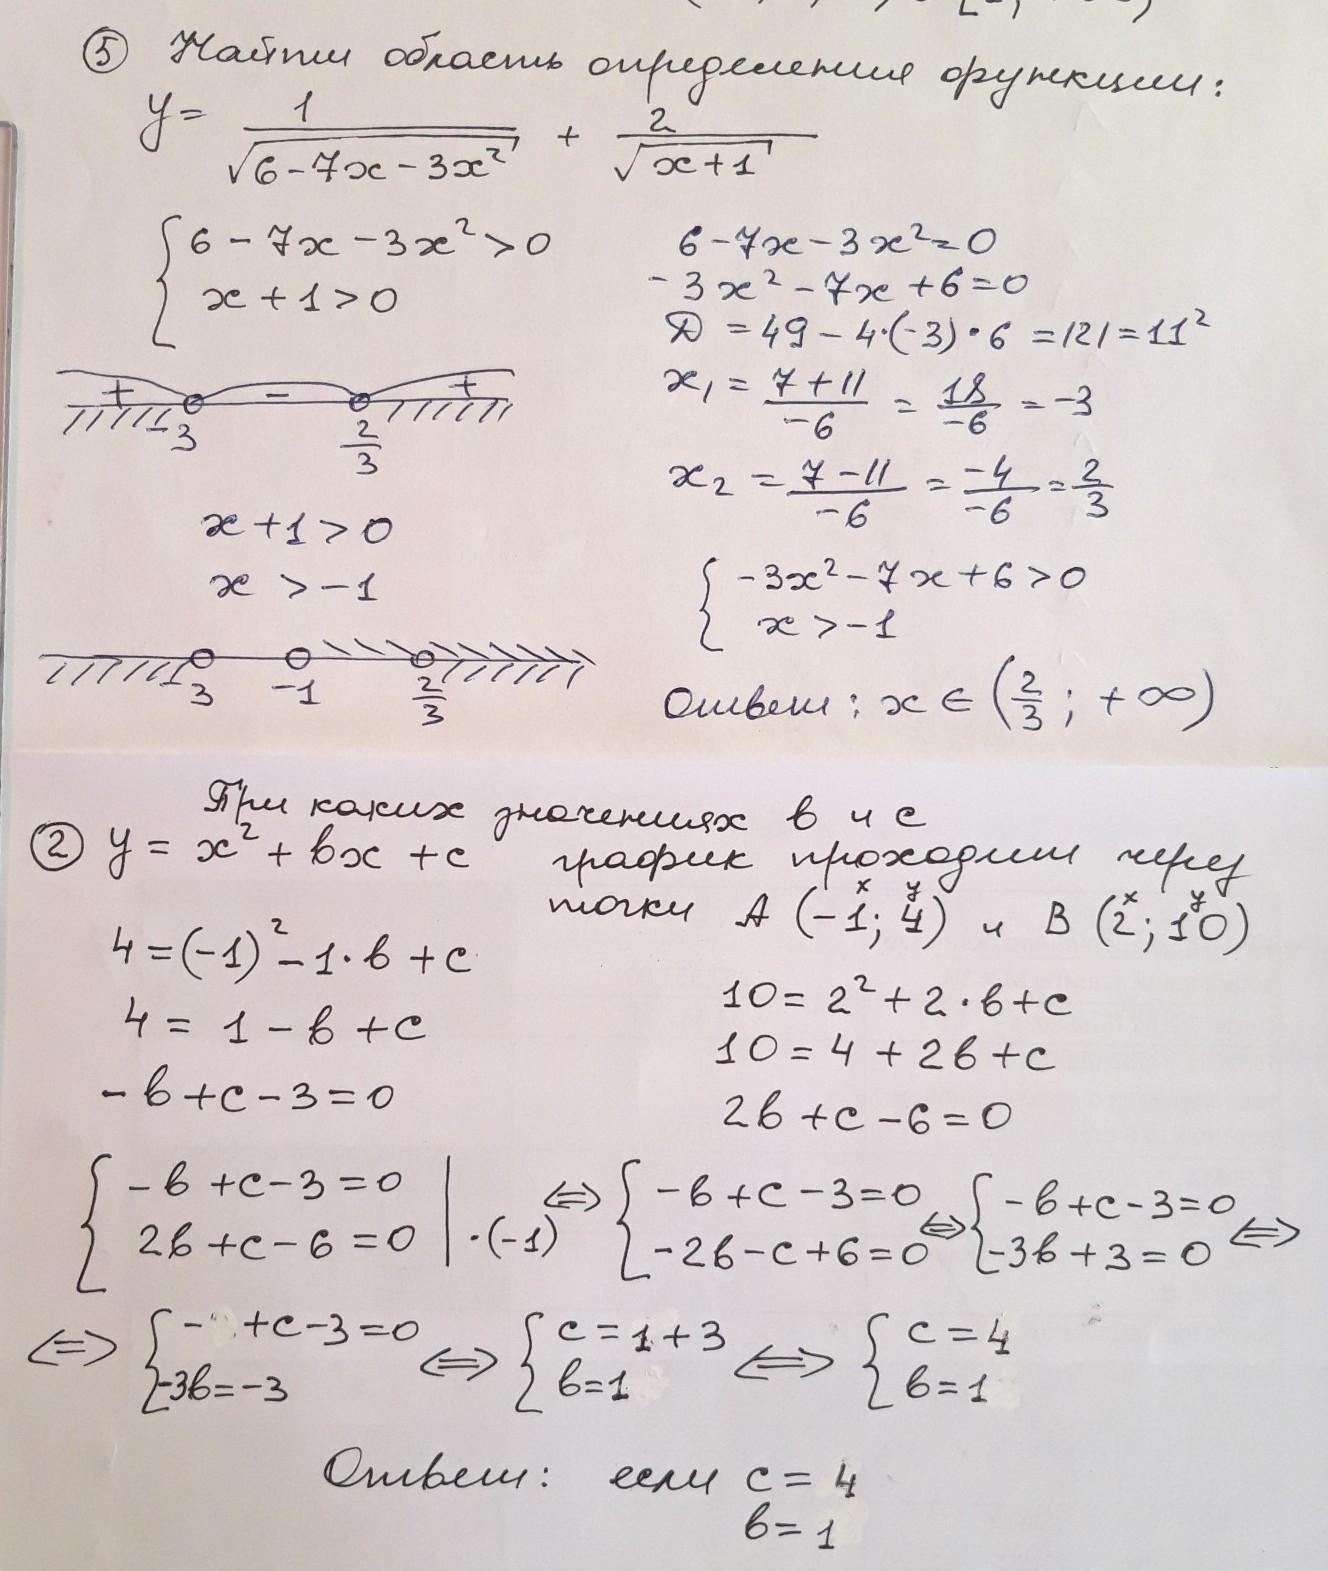 ⑤ Найти область определения функции:
y = 1/√(6-7x-3x²) + 2/√(x+1)
{ 6-7x-3x²>0
x+1>0
6-7x-3x²=0
-3x²-7x+6=0
Д = 49-4·(-3)·6 = 121 = 11²
x₁ = (7+11)/-6 = 18/-6 = -3
x₂ = (7-11)/-6 = -4/-6 = 2/3
+ - +
-3 2/3
x+1>0
x>-1
{ -3x²-7x+6>0
x>-1
-3 -1 2/3
Ответ: x∈(2/3; +∞)
При каких значениях в и с
② y = x²+вx+с график проходит через
точки А (-1; 4) и В (2; 10)
x y x y
4=(-1)²-1·в+с
4= 1-в+с
-в+с-3=0
10=2²+2·в+с
10=4+2в+с
2в+с-6=0
{ -в+с-3=0 | ⇔ { -в+с-3=0 ⇔ { -в+с-3=0 ⇔
2в+с-6=0 | ·(-1) -2в-с+6=0 -3в+3=0
⇔ { - +с-3=0 ⇔ { с=1+3 ⇔ { с=4
-3в=-3 в=1 в=1
Ответ: если с=4
в=1